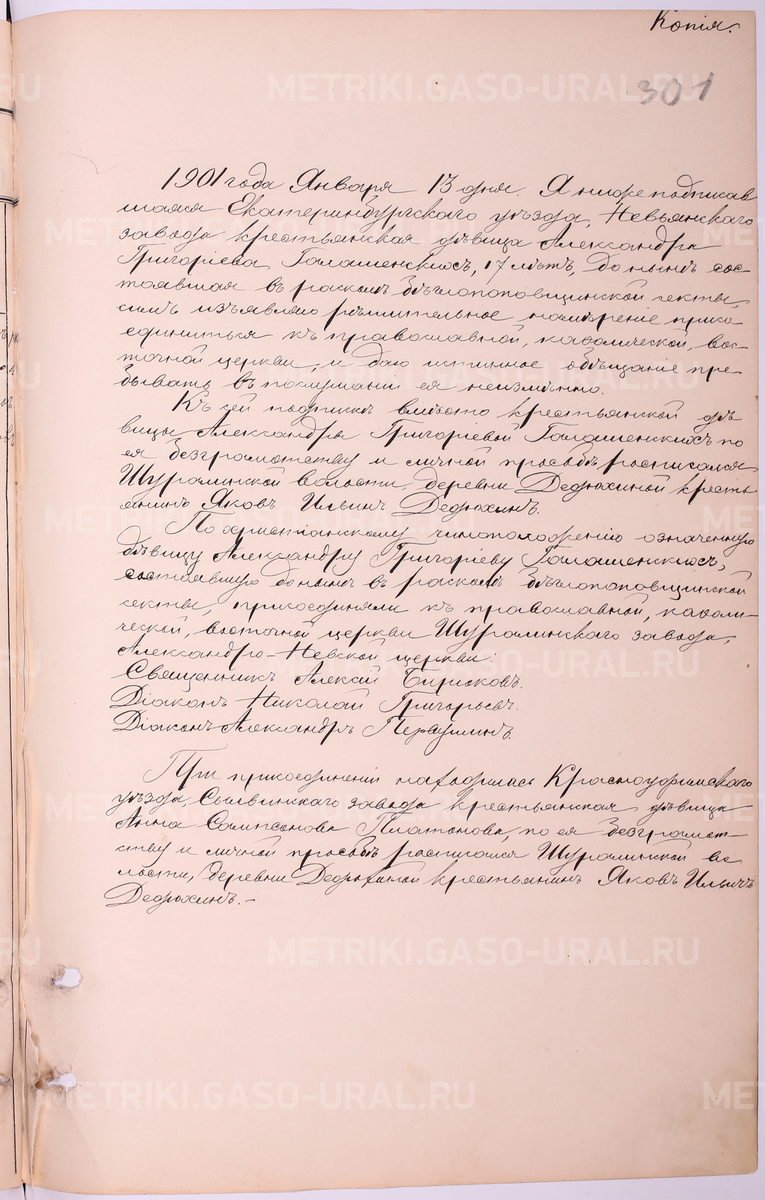 Копія.
301
1901 года Января 13 дня Я нижеподписав
шаяся Екатеринбургскаго уѣзда, Невьянскаго
завода крестьянская дѣвица Александра
Григоріева Галашенскихъ, 17 лѣтъ, до нынѣ сос-
тоявшая въ расколѣ бѣглопоповщинской секты,
симъ изъявляю рѣшительное намѣреніе присо-
единиться къ православной, каѳолической, вос-
точной церкви, и даю истинное обѣщаніе пре-
бывать въ послушаніи ея неизмѣнно.
Къ сей подпискѣ вмѣсто крестьянской дѣ-
вицы Александры Григоріевой Галашенскихъ по
ея безграмотству и личной просьбѣ росписался
Шуралинской волости, деревни Дедюхиной кресть
янинъ Яковъ Ильичъ Дедюхинъ.
По христіанскому чиноположенію означенную
дѣвицу Александру Григоріеву Галашенскихъ,
состоявшую до нынѣ въ расколѣ бѣглопоповщинской
секты, присоединяли къ православной, каѳоли-
ческой, восточной церкви Шуралинскаго завода,
Александро-Невской церкви:
Священникъ Алексій Бирюковъ.
Діаконъ Николай Григорьевъ.
Діаконъ Александръ Первушинъ.
При присоединеніи находилась Красноуфимскаго
уѣзда, Сылвинскаго завода крестьянская дѣвица
Анна Сампсонова Платонова, по ея безграмот-
ству и личной просьбѣ росписался Шуралинской во
лости, деревни Дедюхиной крестьянинъ Яковъ Ильичъ
Дедюхинъ.-
METRIKI.GASO-URAL.RU